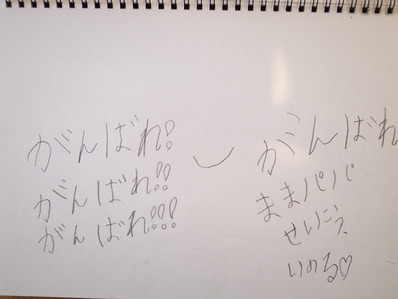 がんばれ!
がんばれ!!
がんばれ!!!
がんばれ
ままパパ
せいこう
いのる♡